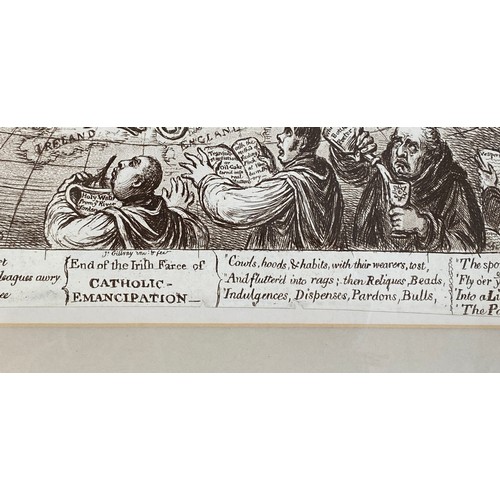 IRELAND
ENGLAND
Holy Water
Js. Gillray inv & fec
et
leagues awry
ee
End of the Irish Farce of
CATHOLIC-
EMANCIPATION—
"Cowls, hoods, & habits, with their wearers, tost,
"And flutter'd into rags; then Reliques, Beads,
"Indulgences, Dispenses, Pardons, Bulls,
"The spo
Fly o'er y
"Into a Li
"The Pa